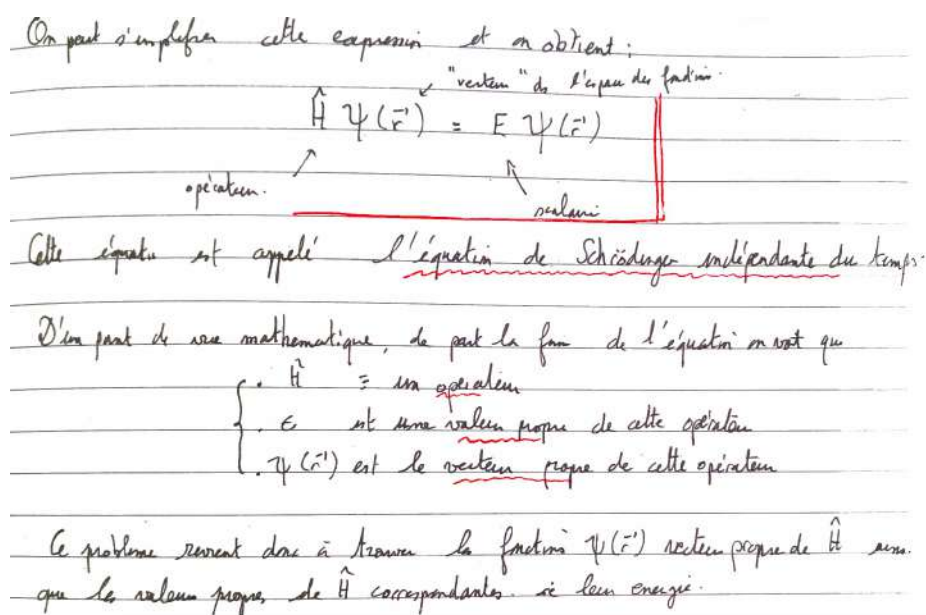 On peut s'implifier cette expression et on obtient :
"vecteur" de l'espace des fonctions.
Ĥ Ψ(r⃗) = E Ψ(r⃗)
opérateur.
scalaire
Cette équatio est appelé l'équation de Schrödinger indépendante du temps.
D'un point de vue mathématique, de part la forme de l'équation on voit que
. Ĥ ≡ un opérateur
. E est une valeur propre de cette opérateur
. Ψ(r⃗) est le vecteur propre de cette opérateur
Ce problème revient donc à trouver la fonctions Ψ(r⃗) vecteur propre de Ĥ ainsi
que les valeurs propres de Ĥ correspondantes. ie leur énergie.